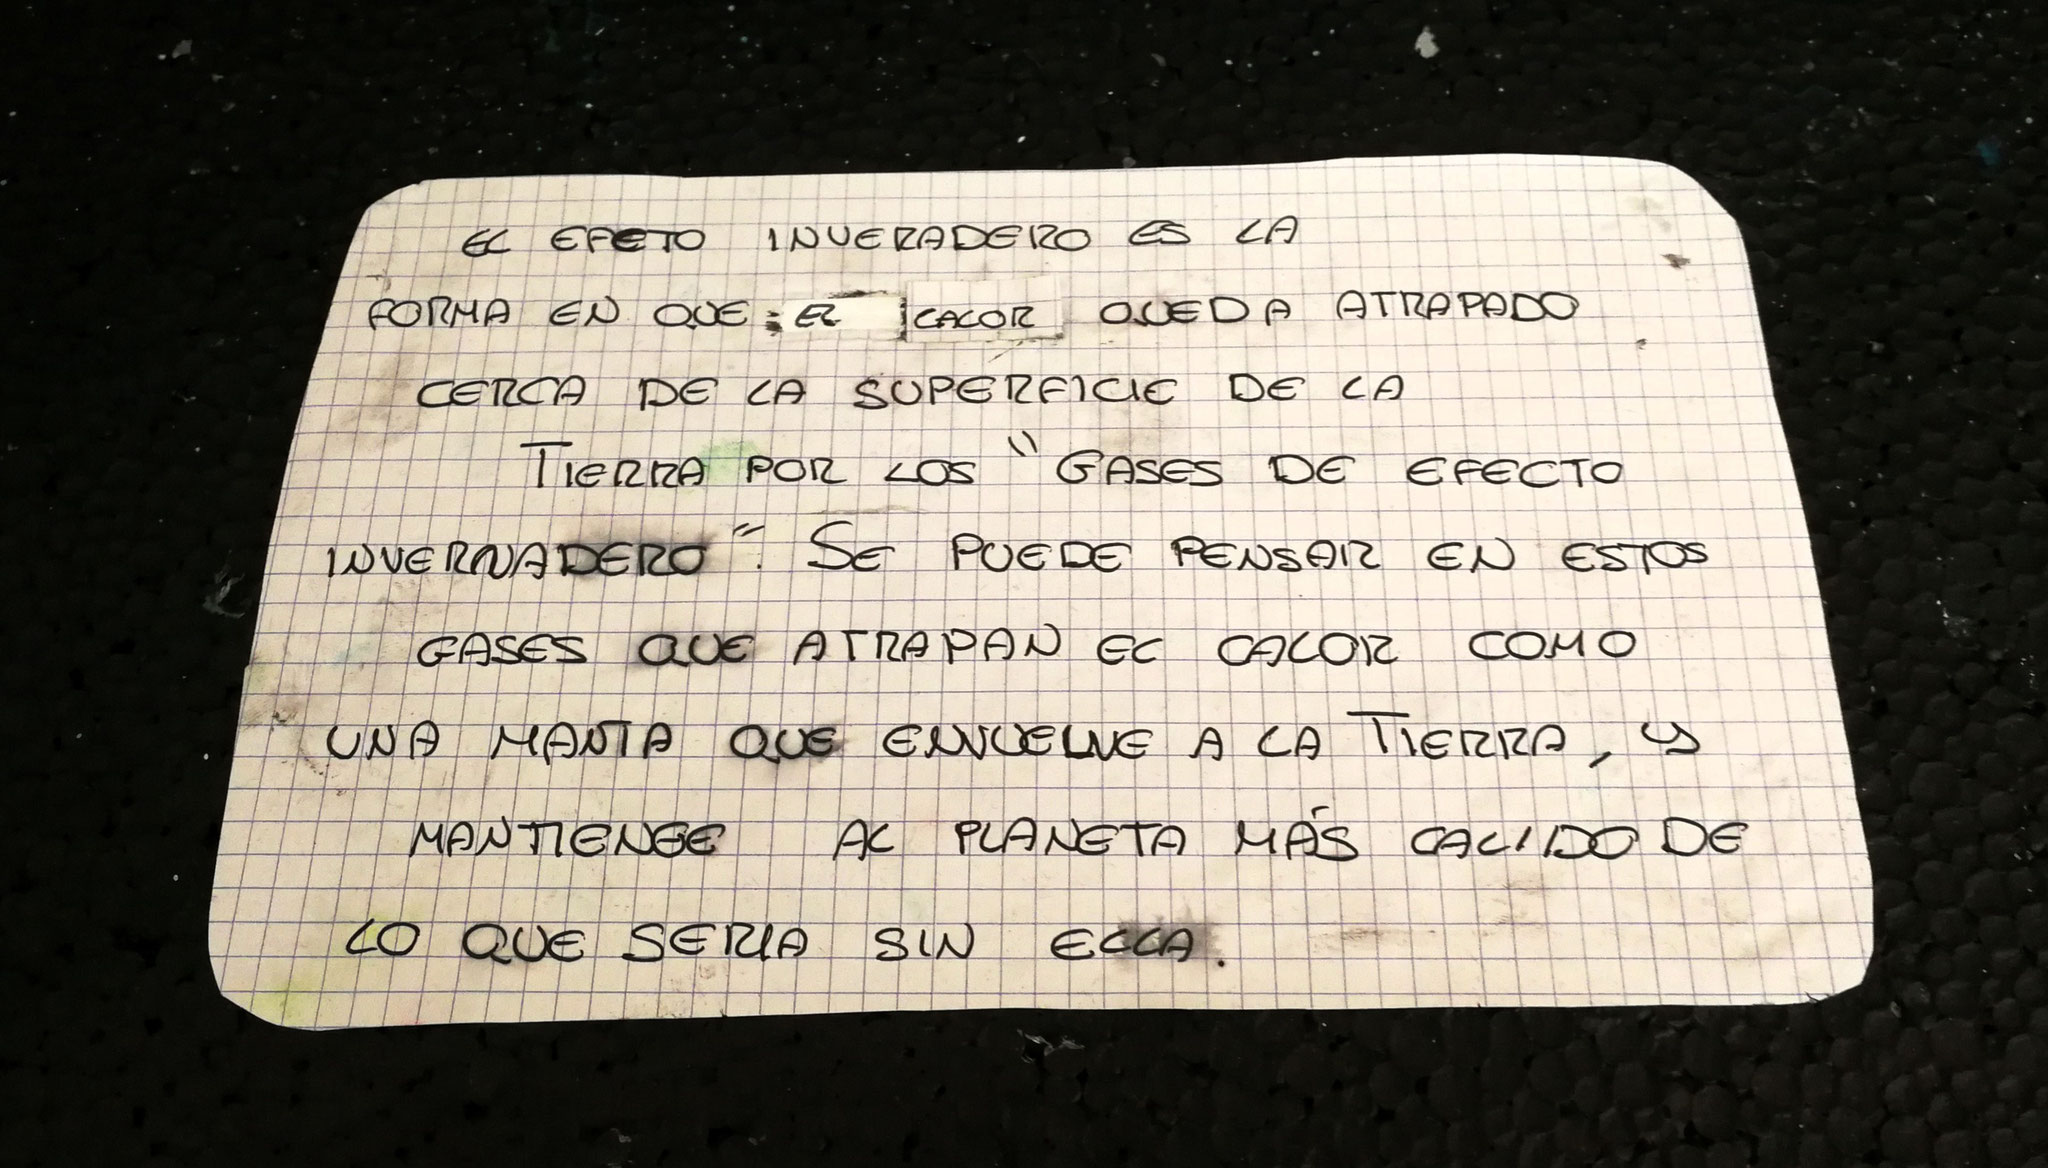 EL EFETO INVERADERO ES LA
FORMA EN QUE EL CALOR QUEDA ATRAPADO
CERCA DE LA SUPERFICIE DE LA
TIERRA POR LOS "GASES DE EFECTO
INVERNADERO". SE PUEDE PENSAR EN ESTOS
GASES QUE ATRAPAN EL CALOR COMO
UNA MANTA QUE ENVUELVE A LA TIERRA, Y
MANTIENEE AL PLANETA MÁS CALIDO DE
LO QUE SERIA SIN ELLA.